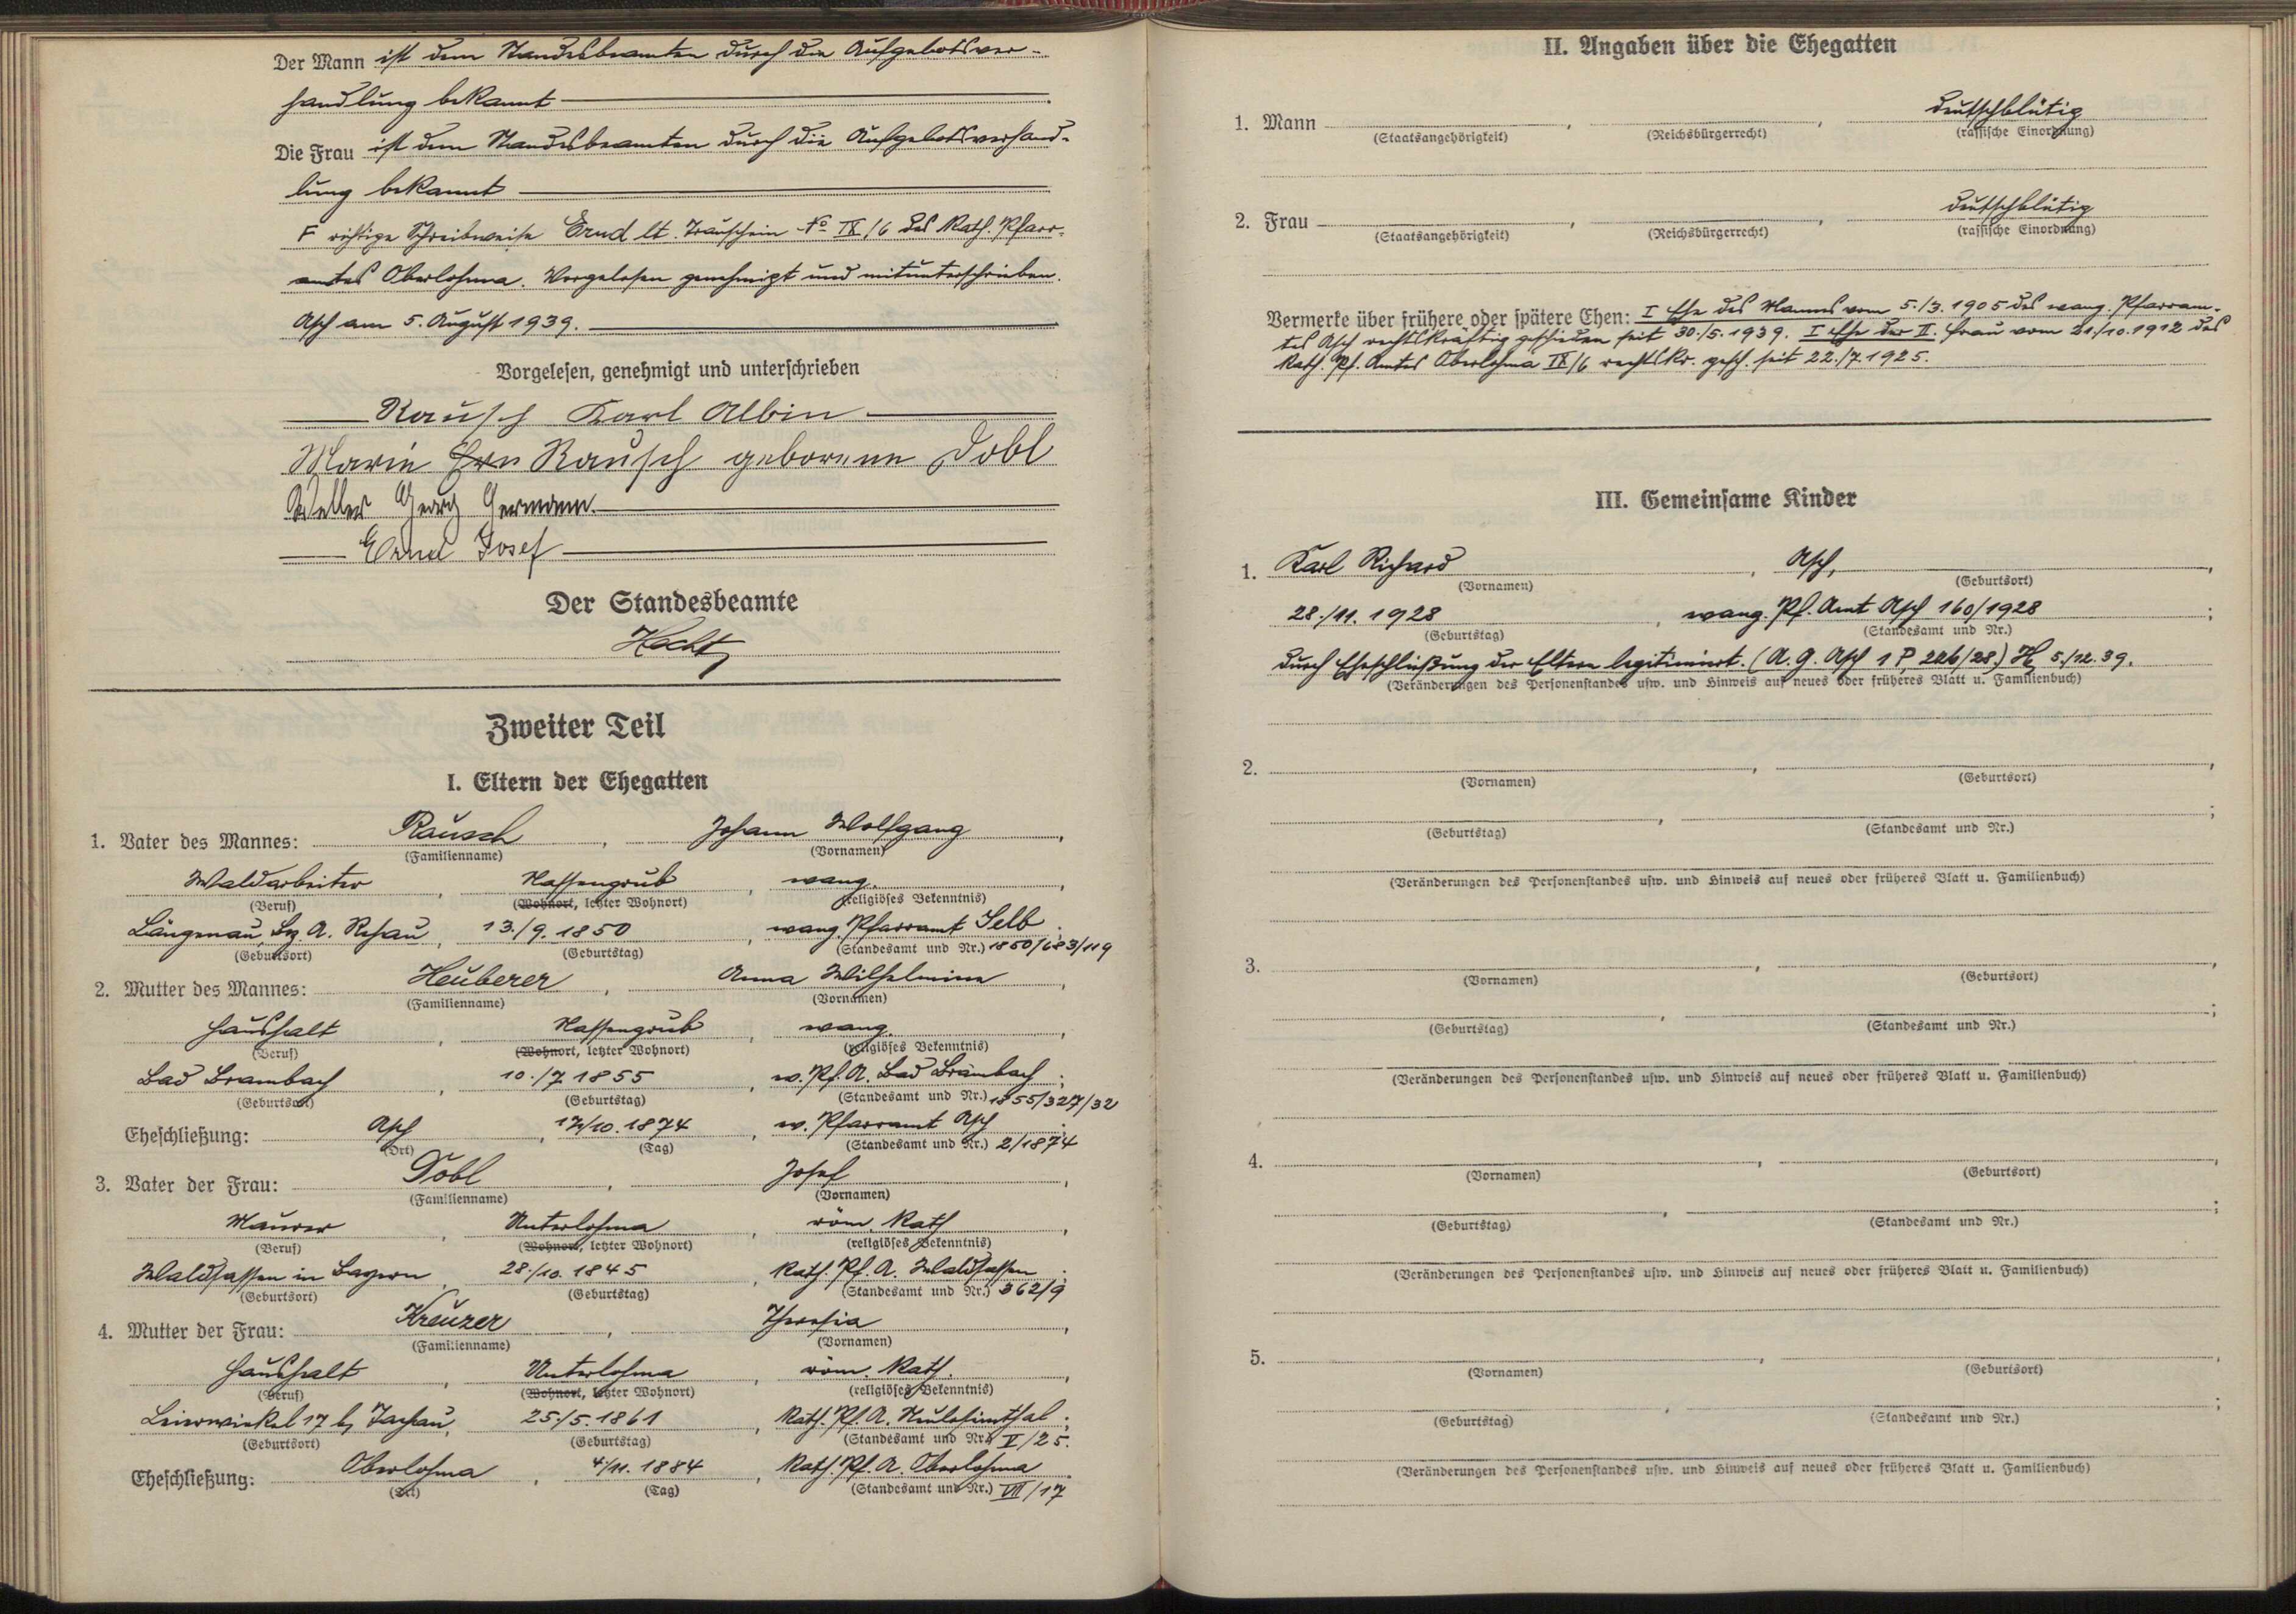 Der Mann ist dem Standesbeamten durch die Aufgebotsver-
handlung bekannt
Die Frau ist dem Standesbeamten durch die Aufgebotsverhand-
lung bekannt
F richtige Schreibweise Ernd lt. Trauschein No IX/6 des Kath. Pfarr-
amtes Oberlohma. Vorgelesen genehmigt und mitunterschrieben.
Asch am 5. August 1939.
Vorgelesen, genehmigt und unterschrieben
Rausch Karl Albin
Marie Ern Rausch geborene Dobl
Georg Hermann
Ernd Josef
Der Standesbeamte
Zweiter Teil
I. Eltern der Ehegatten
1. Vater des Mannes: Rausch, Johann Wolfgang,
(Familienname) (Vornamen)
Waldarbeiter, Nassengrub, evang.,
(Beruf) (Wohnort, letzter Wohnort) (religiöses Bekenntnis)
Längenau, Bz. A. Rehau, 13./9. 1850, evang. Pfarramt Selb;
(Geburtsort) (Geburtstag) (Standesamt und Nr.) 1850/683/119
2. Mutter des Mannes: Heuberer, Anna Wilhelmine,
(Familienname) (Vornamen)
Haushalt, Nassengrub, evang.,
(Beruf) (Wohnort, letzter Wohnort) (religiöses Bekenntnis)
Bad Brambach, 10./7. 1855, ev. Pf. A. Bad Brambach;
(Geburtsort) (Geburtstag) (Standesamt und Nr.) 1855/327/32
Eheschließung: Asch, 17/10. 1874, ev. Pfarramt Asch;
(Ort) (Tag) (Standesamt und Nr.) 2/1874
3. Vater der Frau: Dobl, Josef,
(Familienname) (Vornamen)
Maurer, Unterlohma, röm. Kath,
(Beruf) (Wohnort, letzter Wohnort) (religiöses Bekenntnis)
Waldsassen in Bayern, 28./10. 1845, Kath. Pf. A. Waldsassen;
(Geburtsort) (Geburtstag) (Standesamt und Nr.) 362/9
4. Mutter der Frau: Kreuzer, Theresia,
(Familienname) (Vornamen)
Haushalt, Unterlohma, röm. Kath.,
(Beruf) (Wohnort, letzter Wohnort) (religiöses Bekenntnis)
17 b. Tachau, 25./5. 1861, Kath. Pf. A. Neulosimthal;
(Geburtsort) (Geburtstag) (Standesamt und Nr.) V/25.
Eheschließung: Oberlohma, 4./11. 1884, Kath. Pf. A. Oberlohma
(Ort) (Tag) (Standesamt und Nr.) VII/17
II. Angaben über die Ehegatten
1. Mann , , deutschblütig
(Staatsangehörigkeit) (Reichsbürgerrecht) (rassische Einordnung)
2. Frau , , deutschblütig
(Staatsangehörigkeit) (Reichsbürgerrecht) (rassische Einordnung)
Vermerke über frühere oder spätere Ehen: I Ehe des Mannes vom 5./3. 1905 des evang. Pfarram-
tes Asch rechtskräftig geschieden seit 30./5. 1939. I Ehe der II. Frau vom 21./10. 1912 des
Kath. Pf. Amtes Oberlohma IX/6 rechtskr. gesch. seit 22./7. 1925.
III. Gemeinsame Kinder
1. Karl Richard, Asch,
(Vornamen) (Geburtsort)
28./11. 1928, evang. Pf. Amt Asch 160/1928;
(Geburtstag) (Standesamt und Nr.)
durch Eheschließung der Eltern legitimiert. (A. G. Asch 1 P 226/28.) H 5./12. 39.
(Veränderungen des Personenstandes usw. und Hinweis auf neues oder früheres Blatt u. Familienbuch)
2.
(Vornamen) (Geburtsort)
(Geburtstag) (Standesamt und Nr.)
(Veränderungen des Personenstandes usw. und Hinweis auf neues oder früheres Blatt u. Familienbuch)
3.
(Vornamen) (Geburtsort)
(Geburtstag) (Standesamt und Nr.)
(Veränderungen des Personenstandes usw. und Hinweis auf neues oder früheres Blatt u. Familienbuch)
4.
(Vornamen) (Geburtsort)
(Geburtstag) (Standesamt und Nr.)
(Veränderungen des Personenstandes usw. und Hinweis auf neues oder früheres Blatt u. Familienbuch)
5.
(Vornamen) (Geburtsort)
(Geburtstag) (Standesamt und Nr.)
(Veränderungen des Personenstandes usw. und Hinweis auf neues oder früheres Blatt u. Familienbuch)